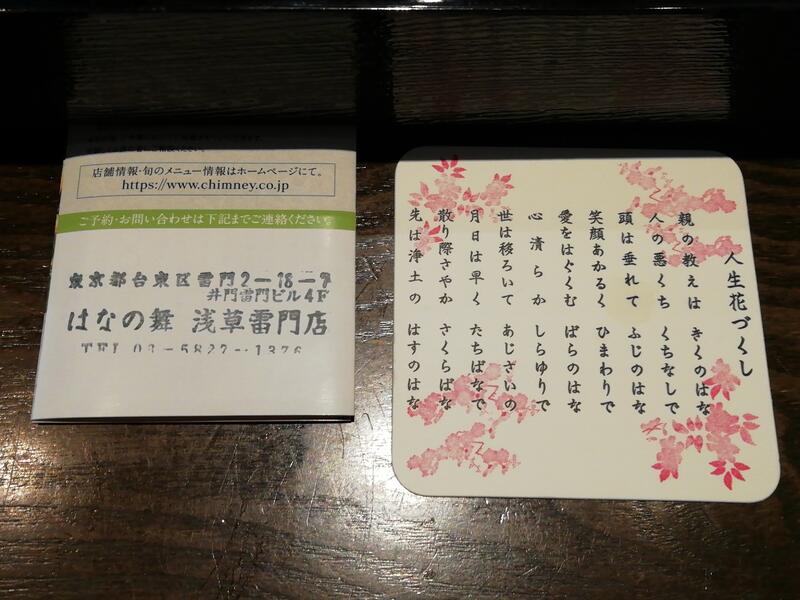 店舗情報・旬のメニュー情報はホームページにて。
https://www.chimney.co.jp
ご予約・お問い合わせは下記までご連絡ください。
東京都台東区雷門2-18-9
井門雷門ビル4F
はなの舞 浅草雷門店
TEL 03-5827-1376
人生花づくし
親の教えは きくのはな
人の悪くち くちなしで
頭は垂れて ふじのはな
笑顔あかるく ひまわりで
愛をはぐくむ ばらのはな
心清らか しらゆりで
世は移ろいて あじさいの
月日は早く たちばなで
散り際さやか さくらばな
先は浄土の はすのはな